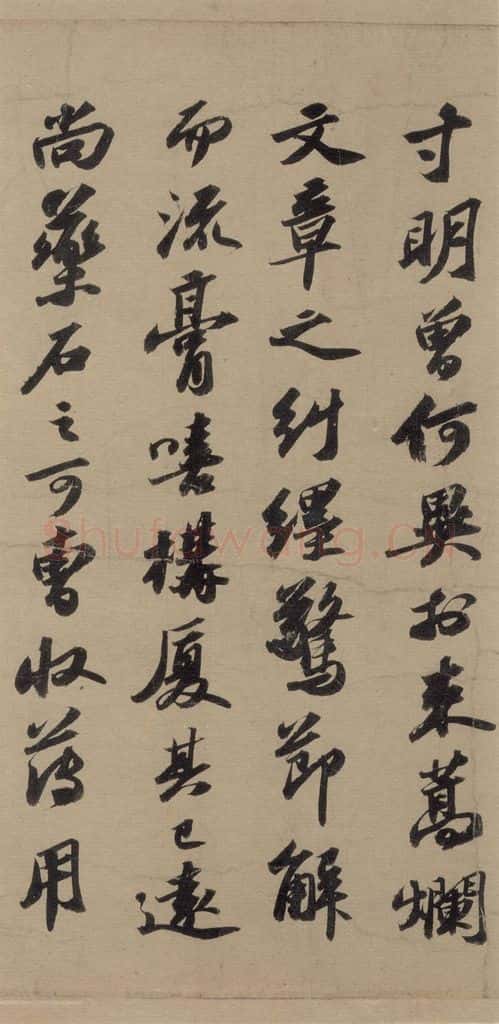 寸明曾何異於束蒿爛
文章之糾纆驚節解
而流膏嘻構厦其已遠
尚藥石之可曹收薄用
shufawang.cn